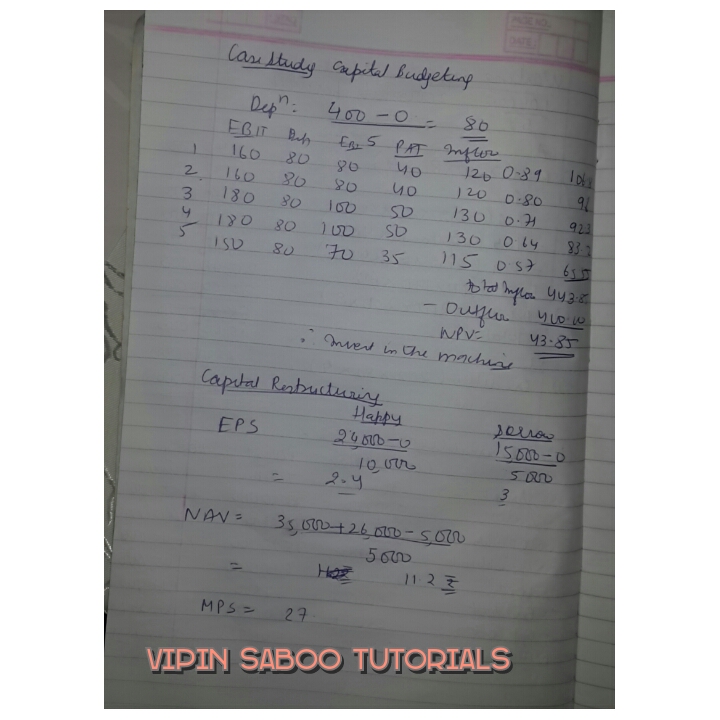 Case Study Capital Budgeting
Depⁿ: 400 - 0 = 80
EBIT Dep EBT 5 PAT Inflow
1 160 80 80 40 120 0.89
2. 160 80 80 40 120 0.80
3 180 80 100 50 130 0.71
4 180 80 100 50 130 0.64
5 150 80 70 35 115 0.57
total Inflow 443.8
- Outflow 400.00
NPV= 43.85
∴ Invest in the machine
Capital Restructuring
Happy Sorrow
EPS 24,000-0 15000-0
10,000 5000
= 2.4 3
NAV= 35,000+26,000-5,000
5000
= 11.2
MPS= 27
VIPIN SABOO TUTORIALS